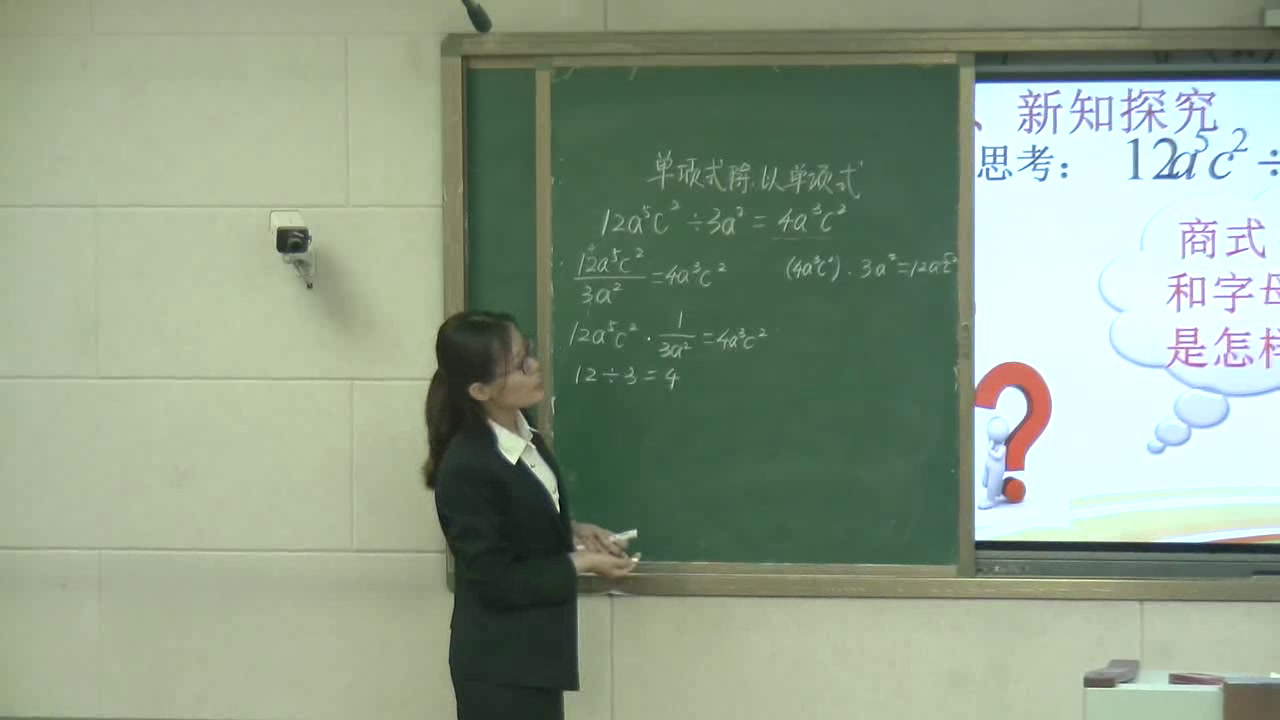 单项式除以单项式
12a⁵c² ÷ 3a² = 4a³c²
12a⁵c²/3a² = 4a³c²
(4a³c²) · 3a² = 12a⁵c²
12a⁵c² · 1/3a² = 4a³c²
12 ÷ 3 = 4
、新知探究
思考： 12a⁵c² ÷
商式
和字母
是怎样